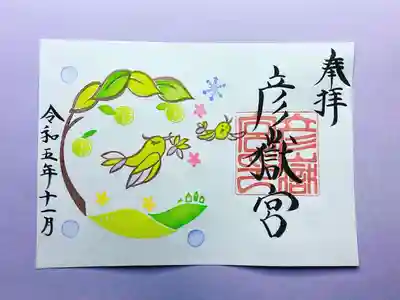 奉拝
彦嶽宮
令和五年十一月